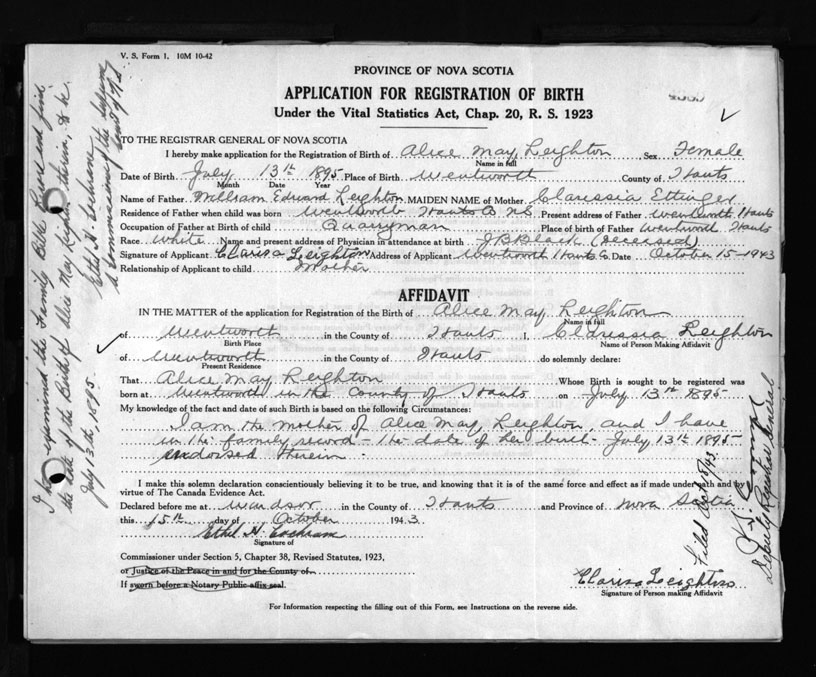 V. S. Form 1. 10M 10-42
PROVINCE OF NOVA SCOTIA
APPLICATION FOR REGISTRATION OF BIRTH
Under the Vital Statistics Act, Chap. 20, R. S. 1923
TO THE REGISTRAR GENERAL OF NOVA SCOTIA
I hereby make application for the Registration of Birth of Alice May Leighton Sex Female
Name in full
Date of Birth July 13th 1895 Place of Birth Wentworth County of Hants
Month Date Year
Name of Father William Edward Leighton MAIDEN NAME of Mother Claressia Ettinger
Residence of Father when child was born Wentworth Hants Co NS Present address of Father Wentworth Hants
Occupation of Father at Birth of child Quarryman Place of birth of Father Wentworth Hants
Race White Name and present address of Physician in attendance at birth J B Black (deceased)
Signature of Applicant Clarisa Leighton Address of Applicant Wentworth Hants Co Date October 15-1943
Relationship of Applicant to child Mother
AFFIDAVIT
IN THE MATTER of the application for Registration of the Birth of Alice May Leighton
Name in full
of Wentworth in the County of Hants I, Claressia Leighton
Birth Place Name of Person Making Affidavit
of Wentworth in the County of Hants do solemnly declare:
Present Residence
That Alice May Leighton Whose Birth is sought to be registered was
born at Wentworth in the County of Hants on July 13th 1895
My knowledge of the fact and date of such Birth is based on the following Circumstances:
I am the mother of Alice May Leighton, and I have
in the family record - the date of her birth - July 13th 1895
endorsed therein.
I make this solemn declaration conscientiously believing it to be true, and knowing that it is of the same force and effect as if made under oath and by
virtue of The Canada Evidence Act.
Declared before me at Windsor in the County of Hants and Province of Nova Scotia
this 15th day of October 1943
Ethel H. Cochran
Signature of
Commissioner under Section 5, Chapter 38, Revised Statutes, 1923,
or Justice of the Peace in and for the County of
If sworn before a Notary Public affix seal.
Clarisa Leighton
Signature of Person making Affidavit
For Information respecting the filling out of this Form, see Instructions on the reverse side.
I have examined the Family Bible and find
the date of the Birth of Alice May Leighton therein, to be
July 13th, 1895.
Ethel H. Cochran
A Commissioner of the Supreme Court of N.S.
Filed Oct 1943
Deputy Registrar General